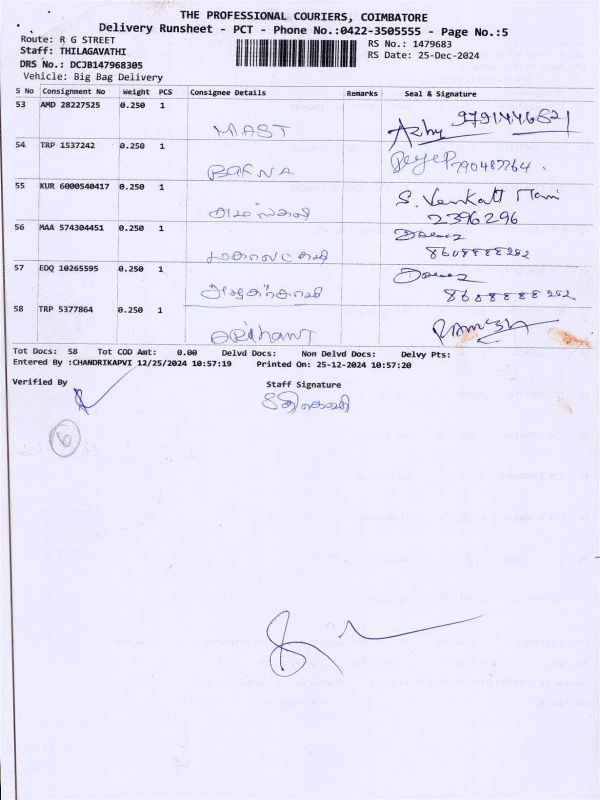 THE PROFESSIONAL COURIERS, COIMBATORE
Delivery Runsheet - PCT - Phone No.:0422-3505555 - Page No.:5
Route: R G STREET
RS No.: 1479683
Staff: THILAGAVATHI
RS Date: 25-Dec-2024
DRS No.: DCJB147968305
Vehicle: Big Bag Delivery
S No Consignment No Weight PCS Consignee Details Remarks Seal & Signature
53 AMD 28227525 0.250 1
MIAST
54 TRP 1537242 0.250 1
BAFNA
55 KUR 6000540417 0.250 1 S. Venkatt Mani
2396296
56 MAA 574304451 0.250 1
8608888282
57 EDQ 10265595 0.250 1
8608888282
58 TRP 5377864 0.250 1 RAMESH
ARIHANT
Tot Docs: 58 Tot COD Amt: 0.00 Delvd Docs: Non Delvd Docs: Delvy Pts:
Entered By :CHANDRIKAPVI 12/25/2024 10:57:19 Printed On: 25-12-2024 10:57:20
Verified By Staff Signature